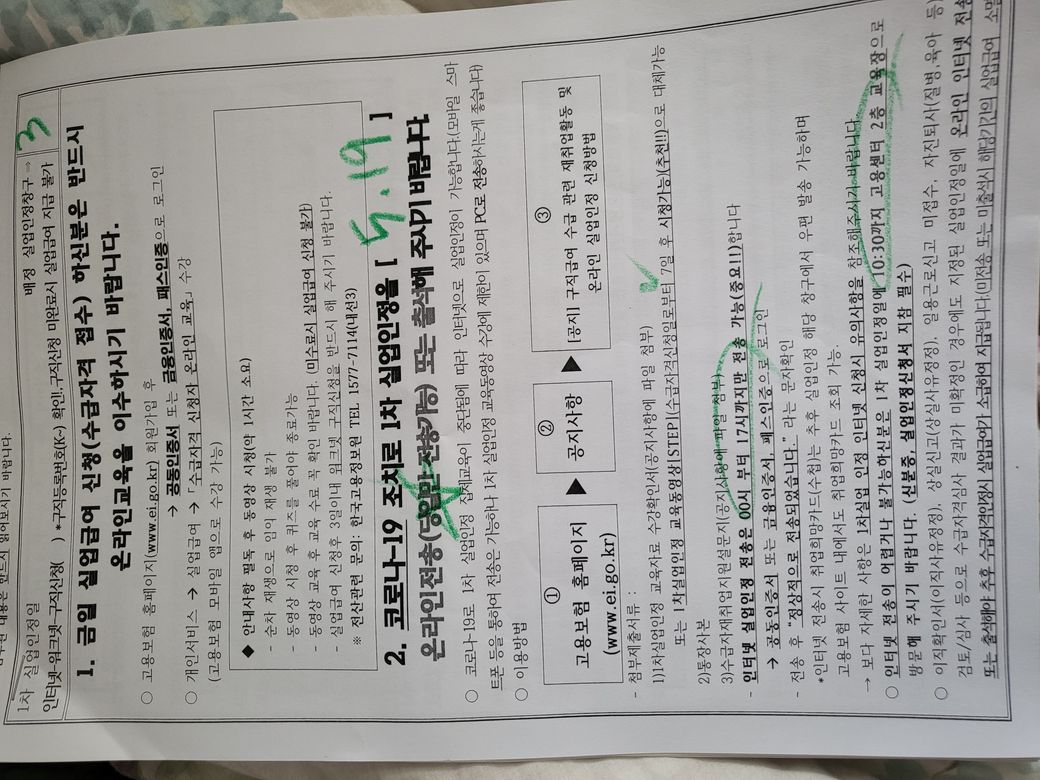 내용은 반드시 읽어보시기 바랍니다.
1차 실업인정일 배정 실업인정창구 → 3
인터넷 워크넷-구직신청( ) *구직등록번호(K-) 확인!, 구직신청 미완료시 실업급여 지급 불가
1. 금일 실업급여 신청(수급자격 접수) 하신분은 반드시
온라인교육을 이수하시기 바랍니다.
○ 고용보험 홈페이지(www.ei.go.kr) 회원가입 후
→ 공동인증서 또는 금융인증서, 패스인증으로 로그인
○ 개인서비스 → 실업급여 → 「수급자격 신청자 온라인 교육」 수강
(고용보험 모바일 앱으로 수강 가능)
◆ 안내사항 필독 후 동영상 시청(약 1시간 소요)
- 순차 재생으로 임의 재생 불가
- 동영상 시청 후 퀴즈를 풀어야 종료가능
- 동영상 교육 후 교육 수료 꼭 확인 바랍니다. (미수료시 실업급여 신청 불가)
- 실업급여 신청후 3일이내 워크넷 구직신청을 반드시 해 주시기 바랍니다.
※ 전산관련 문의: 한국고용정보원 TEL 1577-7114(내선3)
2. 코로나-19 조치로 1차 실업인정을 [ 5.19 ]
온라인전송(당일만 전송가능) 또는 출석해 주시기 바랍니다.
○ 코로나-19로 1차 실업인정 집체교육이 중단됨에 따라 인터넷으로 실업인정이 가능합니다.(모바일 스마
트폰 등을 통하여 전송은 가능하나 1차 실업인정 교육동영상 수강에 제한이 있으며 PC로 전송하시는게 좋습니다)
○ 이용방법
① 고용보험 홈페이지 (www.ei.go.kr) ▶ ② 공지사항 ▶ ③ [공지] 구직급여 수급 관련 재취업활동 및 온라인 실업인정 신청방법
- 첨부제출서류 :
1)1차실업인정 교육자료 수강확인서(공지사항에 파일 첨부)
또는 1차실업인정 교육동영상[STEP1(수급자격신청일로부터 7일 후 시청가능)(추천!!)으로 대체가능
2)통장사본
3)수급자재취업지원설문지(공지사항에 파일 첨부)
- 인터넷 실업인정 전송은 00시 부터 17시까지만 전송 가능(중요!!)합니다
→ 공동인증서 또는 금융인증서, 패스인증으로 로그인
- 전송 후 "정상적으로 전송되었습니다." 라는 문자확인
*인터넷 전송시 취업희망카드(수첩)는 추후 실업인정 해당 창구에서 우편 발송 가능하며
고용보험 사이트 내에서도 취업희망카드 조회 가능.
→ 보다 자세한 사항은 1차실업 인정 인터넷 신청시 유의사항을 참조해주시기 바랍니다.
○ 인터넷 전송이 어렵거나 불가능하신분은 1차 실업인정일에 10:30까지 고용센터 2층 교육장으로
방문해 주시기 바랍니다. (신분증, 실업인정신청서 지참 필수)
○ 이직확인서(이직사유정정), 상실신고(상실사유정정), 일용근로신고 미접수, 자진퇴사(질병,육아 등)
검토/심사 등으로 수급자격심사 결과가 미확정인 경우에도 지정된 실업인정일에 온라인 인터넷 전송
또는 출석해야 추후 수급자격인정시 실업급여가 소급하여 지급됩니다.(미전송 또는 미출석시 해당기간의 실업급여 소멸